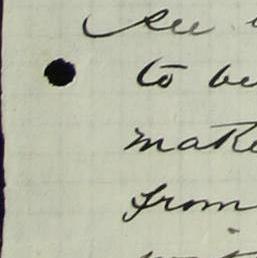 see
to be
make
from